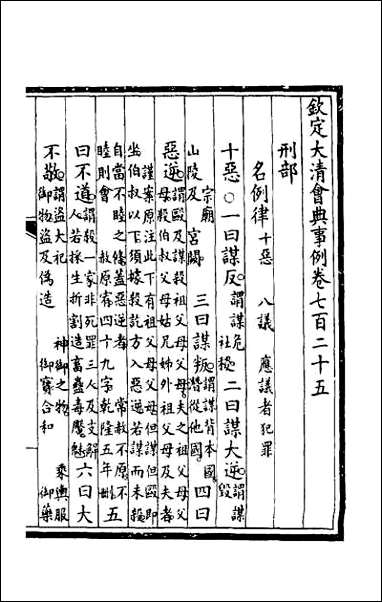 欽定大清會典事例卷七百二十五
刑部
名例律十惡 八議 應議者犯罪
十惡○一曰謀反謂謀危社稷二曰謀大逆謂謀毀
宗廟山陵及宮闕三曰謀叛謂謀背本國潛從他國四曰
惡逆謂毆及謀殺祖父母父母夫之祖父母父母殺伯叔父母姑兄姊外祖父母及夫者
謹案原注此下有祖父母父母但謀但毆即坐伯叔以下須據殺訖方入惡逆若謀而未殺
自當不睦之條蓋惡逆者常赦不原不睦則會赦原宥四十九字乾隆五年刪五
曰不道謂殺一家非死罪三人及支解人若採生折割造畜蠱毒魘魅六曰大
不敬謂盜大祀神御之物乘輿服御物盜及偽造御寶合和御藥